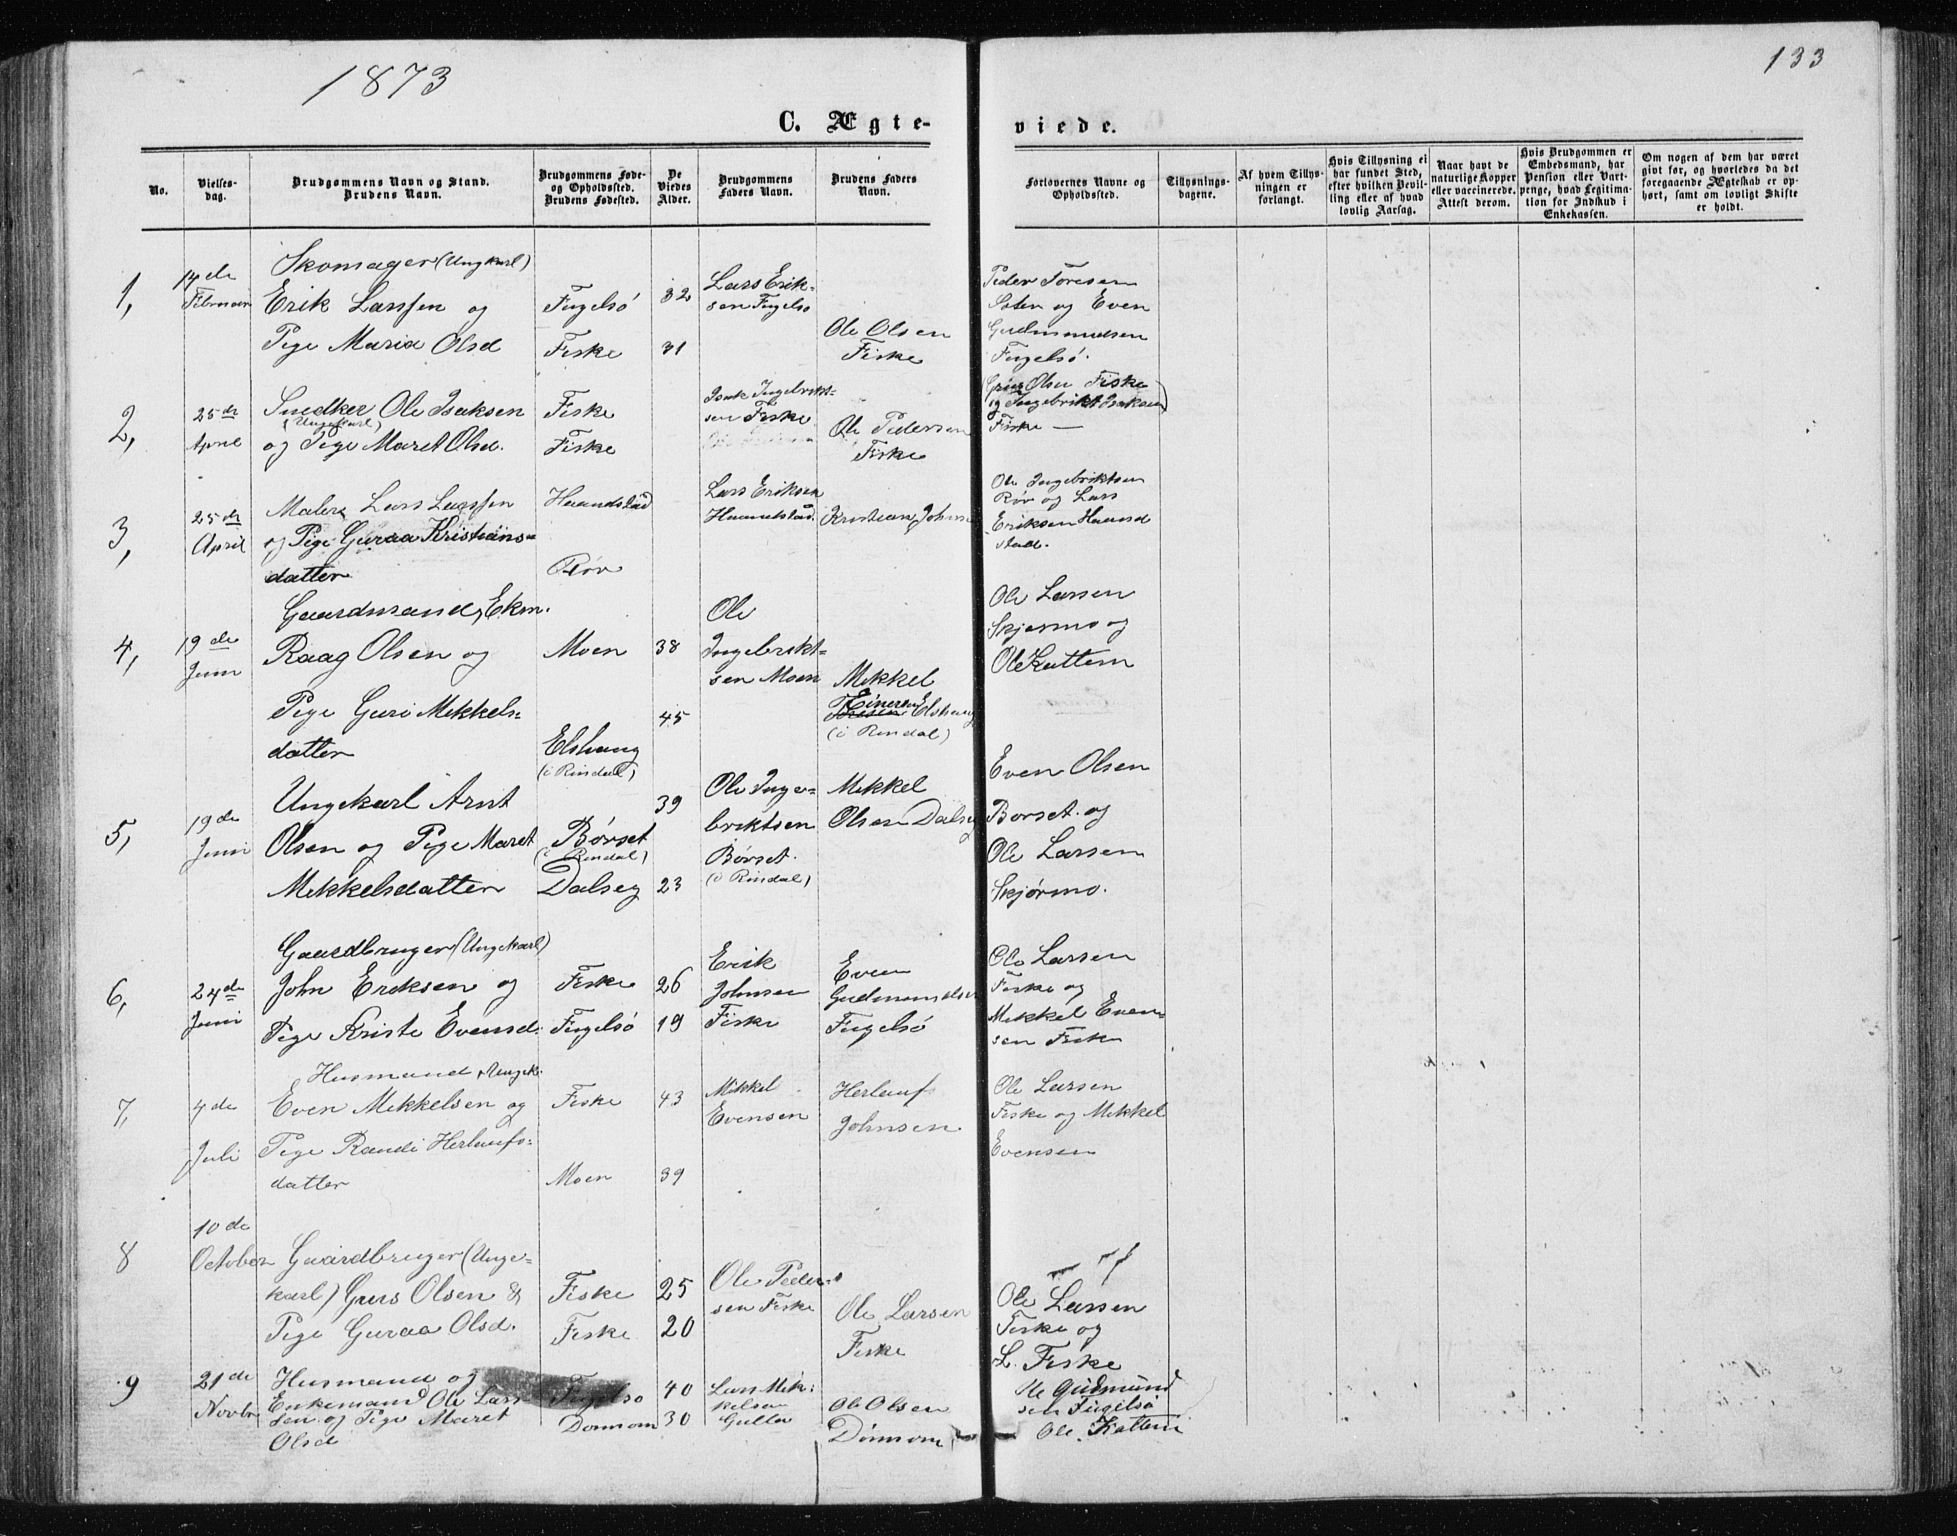 1873
133
C. Ægte-
viede.
No.
Vielses-
dag.
Brudgommens Navn og Stand.
Brudens Navn.
Brudgommens Føde-
og Opholdssted.
Brudens Fødested.
De
Viedes
Alder.
Brudgommens
Faders Navn.
Brudens Faders
Navn.
Forlovernes Navne og
Opholdssted.
Tillysnings-
dagene.
Af hvem Tillys-
ningen er
forlangt.
Hvis Tillysning ei
har fundet Sted,
efter hvilken Bevil-
ling eller af hvad
lovlig Aarsag.
Naar havt de
naturlige Kopper
eller vaccinerede.
Attest derom.
Hvis Brudgommen er
Embedsmand, har
Pension eller Vart-
penge, hvad Legitima-
tion for Indskud i
Enkekassen.
Om nogen af dem har været
givt før, og hvorledes da det
foregaaende Ægteskab er op-
hørt, samt om lovligt Skifte
er holdt.
1,
14de
Februar
Skomager (Ungkarl)
Erik Larssen og
Pige Maria Olsd
Fugelsö
Fiske
32
31
Lars Erik-
sen Fugelsö
Ole Olsen
Fiske
Peder Toresen
og Even
Gudmundsen
Fugelsö.
2,
25de
April
Snedker Ole Isaksen
(Ungekarl)
og Pige Maret Olsd.
Fiske
Fiske
Isak Ingebrikt-
sen Fiske
Ole Pedersen
Fiske
Olsen Fiske
og Ingebrikt Isaksen
Fiske —
3,
25de
April
Maler Lars Larssen
og Pige Guraa Kristians-
datter
Haandstad
Röv
Lars Eriksen
Haandstad
Kristian Johns
Ole Ingebriktsen
Röv og Lars
Eriksen Haand
stad.
4,
19de
Juni
Gaardmand, Ekm.
Raag Olsen og
Pige Guri Mikkels-
datter
Moen
Elshaug
(i Rindal)
38
45
Ole
Ingebrikt-
sen Moen
Mikkel
Einersen Elshaug
(i Rindal)
Ole Larsen
Skjørmo og
Ole Kattem
5,
19de
Juni
Ungekarl Arnt
Olsen og Pige Maret
Mikkelsdatter
Børset
(i Rindal)
Dalseg
39
23
Ole Inge-
briktsen
Børset.
(i Rindal)
Mikkel
Olsen Dalseg
Even Olsen
Borset. og
Ole Larsen
Skjørmo.
6,
24de
Juni
Gaardbruger (Ungekarl)
John Eriksen og
Pige Kriste Evensd.
Fiske
Fugelsö
26
19
Erik
Johnsen
Fiske
Even
Gudmundsen
Fugelsö
Ole Larsen
Fiske og
Mikkel Even-
sen Fiske
7,
4de
Juli
Husmand, Ungek.
Even Mikkelsen og
Pige Randi Herlaufs-
datter
Fiske
Moen
43
39
Mikkel
Evensen
Herlauf
Johnsen
Ole Larsen
Fiske og Mikkel
Evensen
8
10de
October
Gaardbruger (Unge-
karl) Guns Olsen &
Pige Guraa Olsd.
Fiske
Fiske
25
20
Ole Peder-
sen Fiske
Ole Larsen
Fiske
Ole Larsen
Fiske og
L. Fiske
9
21de
Novbr
Husmand og
Enkemand Ole Lars-
sen og Pige Maret
Olsd
Fugelso
Donnom
40
30
Lars Mik-
kelsen
Ole Olsen
Dönnom
Ole Gudmund
sen Fugelsö
Ole. Kattem